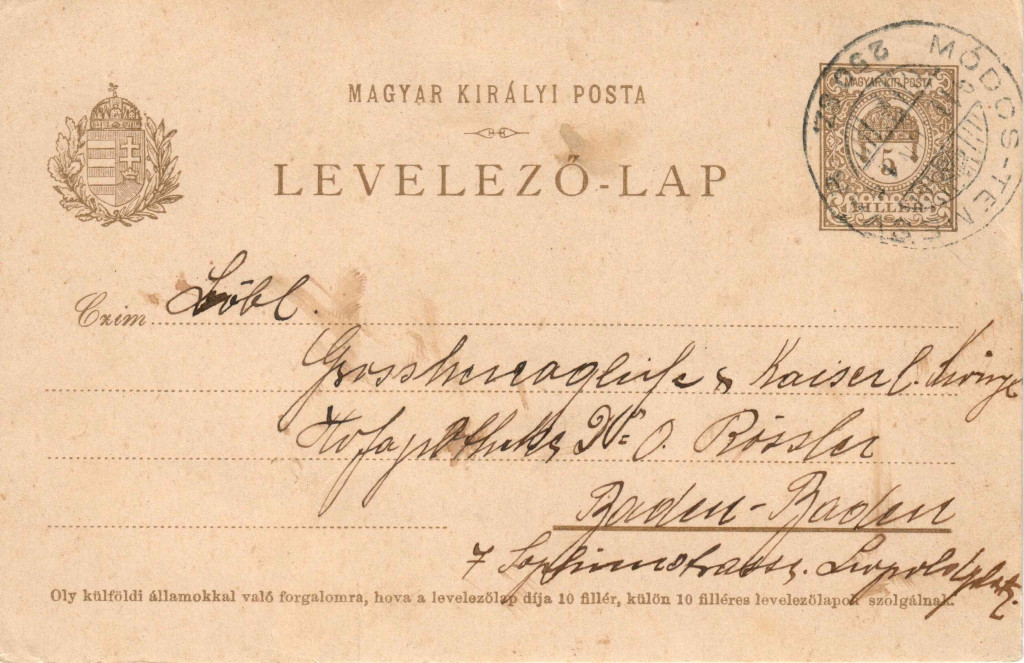 MAGYAR KIRÁLYI POSTA
LEVELEZŐ-LAP
MAGYAR KIR. POSTA
5
FILLÉR
MÓDOS-TENE
Czim Löbl.
Grossherzogliche & Kaiserl.
Hofapotheke Dr. O. Rössler
Baden-Baden
7 Sophienstrasse. Leopoldplatz.
Oly külföldi államokkal való forgalomra, hova a levelezőlap díja 10 fillér, külön 10 filléres levelezőlapok szolgálnak.